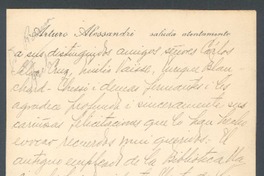 Arturo Alessandri saluda atentamente
a sus distinguidos amigos señores Carlos
Silva Cruz, Emilio Vaïsse, Enrique Blan
chard-Chessi i demas firmantes i les
agradece profunda i sinceramente sus
cariñosas felicitaciones que le han hecho
evocar recuerdos mui queridos. El
antiguo empleado de la Biblioteca Na